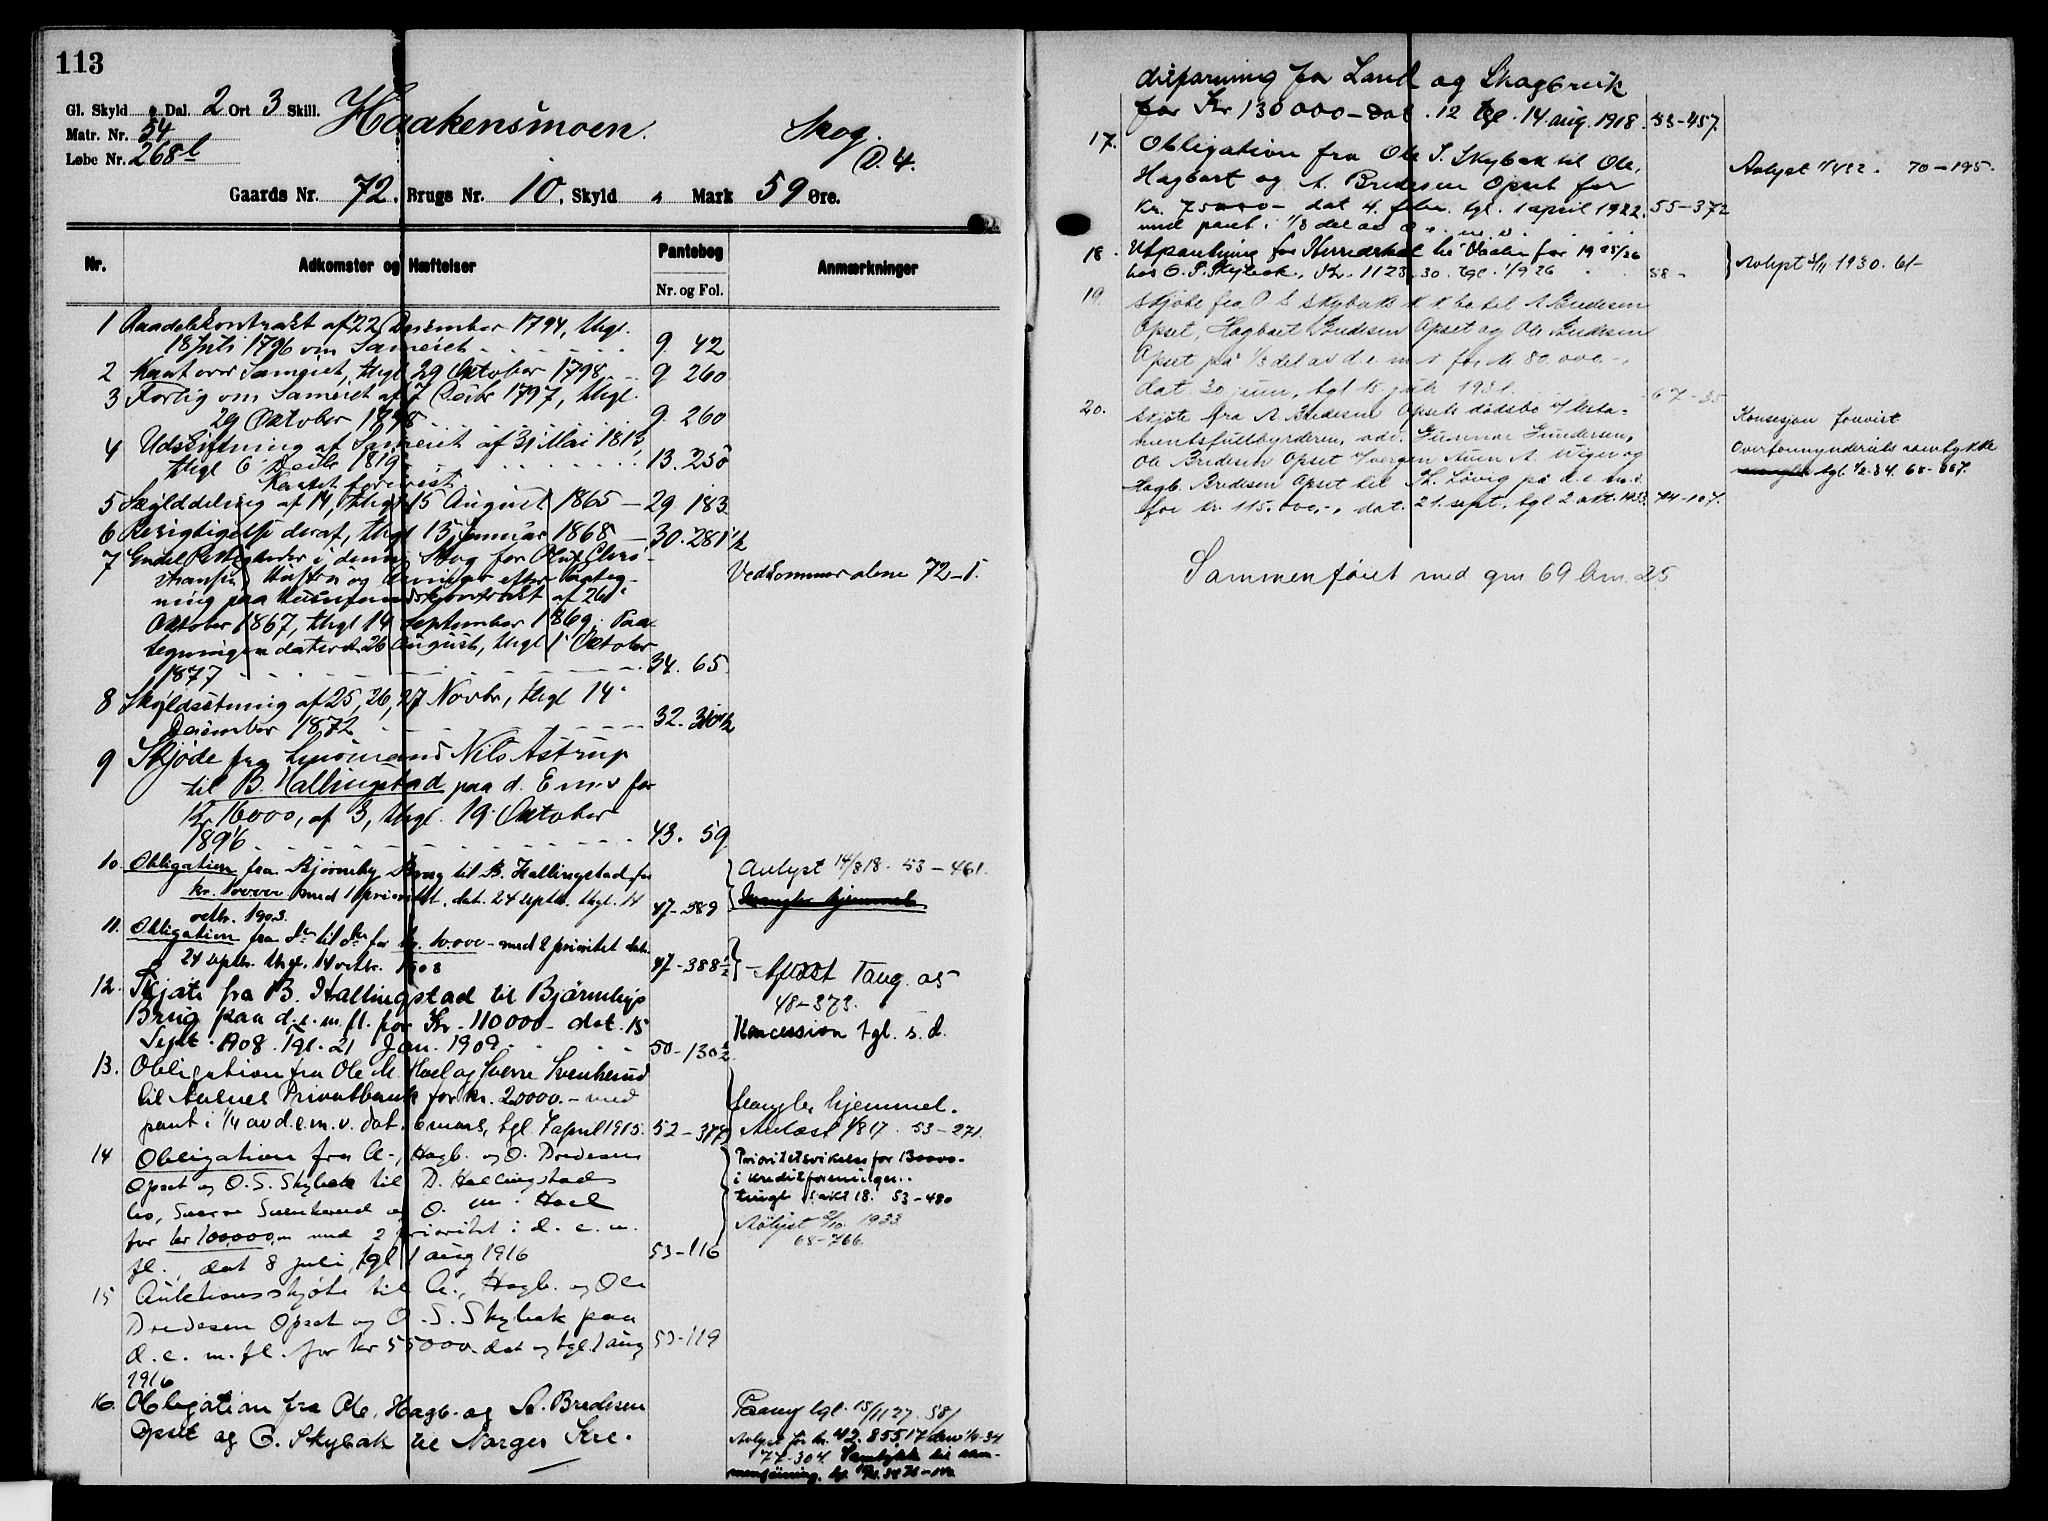 113
Gl. Skyld " Dal. 2 Ort 3 Skill.
Matr. Nr. 54
Løbe Nr. 268 l
Haakensmoen.
Skog.
D. 4.
Gaards Nr. 72, Brugs Nr. 10, Skyld " Mark 59 Øre.
Nr.
Adkomster og Hæftelser
Pantebog
Nr. og Fol.
Anmærkninger
1 Raadelskontrakt af 22 December 1794, thgl.
18 Juli 1796 om Sameiet 9. 42
2 Kart over Sameiet, thgl 29 Oktober 1798 9 260
3 Forlig om Sameiet af 7 Decbr 1797, thgl.
29 Oktober 1798 9. 260
4 Udskiftning af Sameiet af 31 Mai 1813,
thgl 6 Decbr 1819 13. 250
Kartet forevist.
5 Skylddeling af 14, thgl 15 August 1865 — 29. 183
6 Berigtigelse deraf, thgl 13 Januar 1868 — 30. 281 1/2
7 Endel Rettigheder i denne Skog for Oluf
Hustru og efter Paateg-
ning paa Husmandskontrakt af 26
Oktober 1867, thgl 14 September 1869. Paa-
tegningen dateret 26 August, thgl 1 Oktober
1877 34. 65
Vedkommer alene 72-1.
8 Skyldsætning af 25, 26, 27 Novbr, thgl 14
December 1872 32. 310 1/2
9 Skjøde fra Nils Astrup
til B. Hallingstad paa d. E m. v for
Kr. 16000, af 3, thgl. 19 Oktober
1896 43. 59
10. Obligation fra Bjørneby Brug til B. Hallingstad for
kr. med 1 prioritet, dat. 24 septbr. thgl. 14
octbr. 1903. 47-389
Avlyst 14/8 18. 53-461.
Mangler hjemmel
11. Obligation fra do til do for kr. 10.000- med 2 prioritet dat.
24 septbr. thgl. 14 octbr. 1903 47-388 1/2
Aflæst Taug. 05
48-373.
12. Skjøte fra B. Hallingstad til Bjørnebys
Brug paa d. e. m. fl. for Kr. 110000- dat. 15
Sept. 1908. Tgl. 21 Jan. 1909. 50-130 1/2
Koncession tgl. s. d.
13. Obligation fra Ole M. Hoel og Sverre Svenkerud
til Aulnes Privatbank for kr. 20000.- med
pant i 1/4 av d. e. m. v. dat. 6 mars, tgl. 7 april 1915. 52-377
Mangler hjemmel.
Avlæst 1/8 17. 53-271.
14 Obligation fra A-, Hagb. og O. Bredesen
Opset og O. S. Skybak til B. Hallingstads
bo, Sverre Svenkerud og O. M. Hoel
for kr 100.000,- med 2 prioritet i d. e. m.
fl., dat 8 juli, tgl 1 aug 1916 53-116
Prioritetsvikelse for 130000.-
i kreditforeningen.
tingl. 1 okt 18. 53-480
Avlyst 2/10 1933
68-766.
15 Auktionsskjøte til A., Hagb. og Ole
Bredesen Opset og O. S. Skybak paa
d. e. m. fl. for kr 55000. dat og tgl. 1 aug 53-119
1916
16. Obligation fra Ole, Hagb. og A. Bredesen
Opset og O. Skybak til Norges Kre-
Paateg tgl. 15/11 27. 58/
Avlyst for kr. 42.855,17 den 1/6-34
77-304. Samtykke til sam-
menføining.
ditforening for Land og Skogbruk
for Kr 130000- dat. 12 tgl. 14. aug. 1918. 53-457.
17. Obligation fra Ole S. Skybak til Ole,
Hagbart og A. Bredesen Opset for
Kr. 75000- dat 4. febr. tgl. 1 april 1922. 55-372
med pant i 1/3 del av d e. m. v.
Avlyst 1/4 32. 70-195.
18. Utpantning for Herredskat til Vaaler for 1925/26
hos O. S. Skybak, Kr. 1123,30. tgl. 1/9 26 58-
Avlyst 3/11 1930. 61-
19. Skjøte fra O S Skybaks k k bo til A Bredesen
Opset, Hagbart Bredesen Opset og Ole Bredesen
Opset på 1/3 del av d. e. m v for kr. 80.000.-,
dat 30 juni, tgl 15 juli 1931. 67-35
20. Skjøte fra A Bredesen Opsets dødsbo v/ testa-
mentsfullbyrderen, adv. Gunnar Gundersen,
Ole Bredesen Opset v/ vergen A. Wiger og
Hagb. Bredesen Opset til Th. Løvig på d. e m. v.
for kr. 115.000,-, dat. 21. sept., tgl 2 okt. 1933. 74-107.
Konsesjon forevist
Overformynderiets samtykke
mangler tgl. 1/2 34. 68-867.
Sammenføiet med gnr 69 bnr. 25